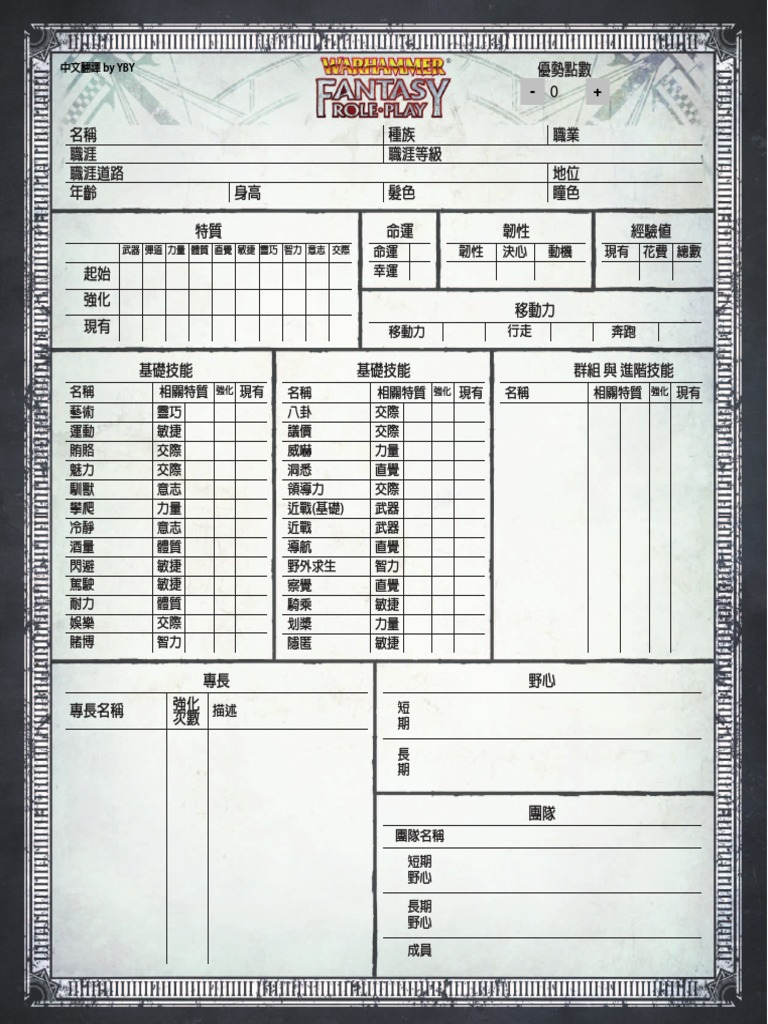 中文翻譯 by YBY
WARHAMMER®
FANTASY
ROLE·PLAY
優勢點數
- 0 +
名稱 種族 職業
職涯 職涯等級
職涯道路 地位
年齡 身高 髮色 瞳色
特質
武器 彈道 力量 體質 直覺 敏捷 靈巧 智力 意志 交際
起始
強化
現有
命運
命運
幸運
韌性
韌性 決心 動機
經驗值
現有 花費 總數
移動力
移動力 行走 奔跑
基礎技能
名稱 相關特質 強化 現有
藝術 靈巧
運動 敏捷
賄賂 交際
魅力 交際
馴獸 意志
攀爬 力量
冷靜 意志
酒量 體質
閃避 敏捷
駕駛 敏捷
耐力 體質
娛樂 交際
賭博 智力
基礎技能
名稱 相關特質 強化 現有
八卦 交際
議價 交際
威嚇 力量
洞悉 直覺
領導力 交際
近戰(基礎) 武器
近戰 武器
導航 直覺
野外求生 智力
察覺 直覺
騎乘 敏捷
划槳 力量
隱匿 敏捷
群組 與 進階技能
名稱 相關特質 強化 現有
專長
專長名稱 強化次數 描述
野心
短期
長期
團隊
團隊名稱
短期
野心
長期
野心
成員